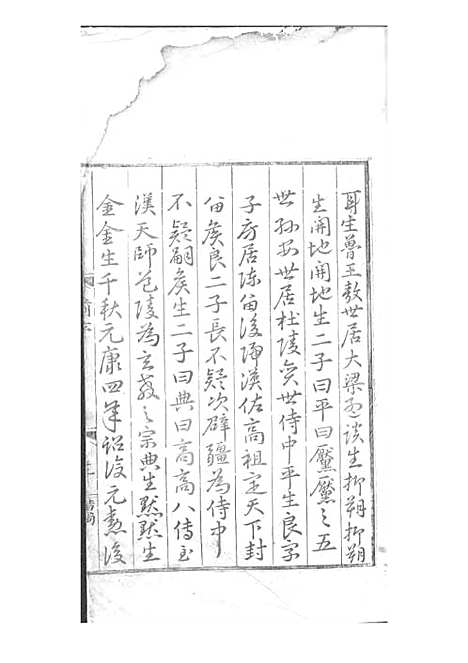 耳生魯王敖世居大梁孟談生抑朔抑朔
生開地開地生二子曰平曰䵍䵍之五
世孙安世居杜陵奕世侍中平生良字
子房居陈留後歸漢佐高祖定天下封
留矦良二子長不疑次辟疆為侍中
不疑嗣矦生二子曰典曰高高八传至
漢天師道陵為玄教之宗典生默默生
金金生千秋元康四年詔復元勲後